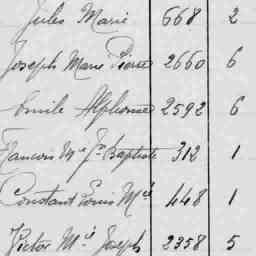 Jules Marie 668 2
Joseph Marie Pierre 2660 6
Emile Alphonse 2592 6
Francois M.ie J.n Baptiste 312 1
Constant Louis M.ie 448 1
Victor M.ie Joseph 2358 5